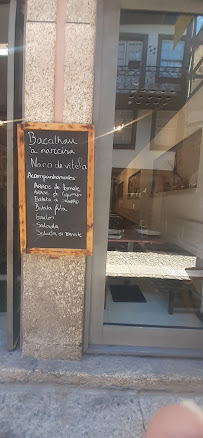 Bacalhau
à narcisa
Naco de vitela
Acompanhamentos
Arroz de tomate
Arroz de legumes
Batata a
Batata frita
Salada
Salada de tomate